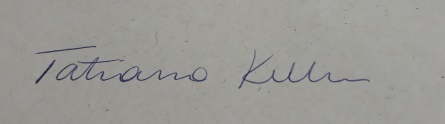 Tatiana Keller